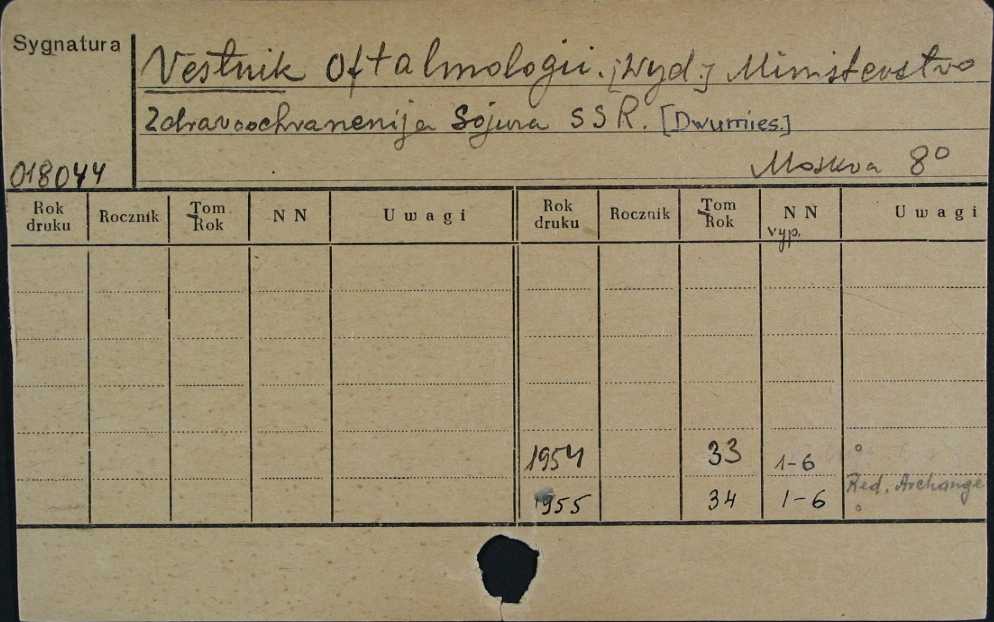 Sygnatura
Vestnik Oftalmologii. [Wyd.] Ministerstvo
Zdravoochranenija Sojuza SSR. [Dwumies.]
018044
Moskva 8°
Rok druku Rocznik Tom Rok NN Uwagi Rok druku Rocznik Tom Rok NN vyp. Uwagi
1954 33 1-6
Red. Archange
1955 34 1-6